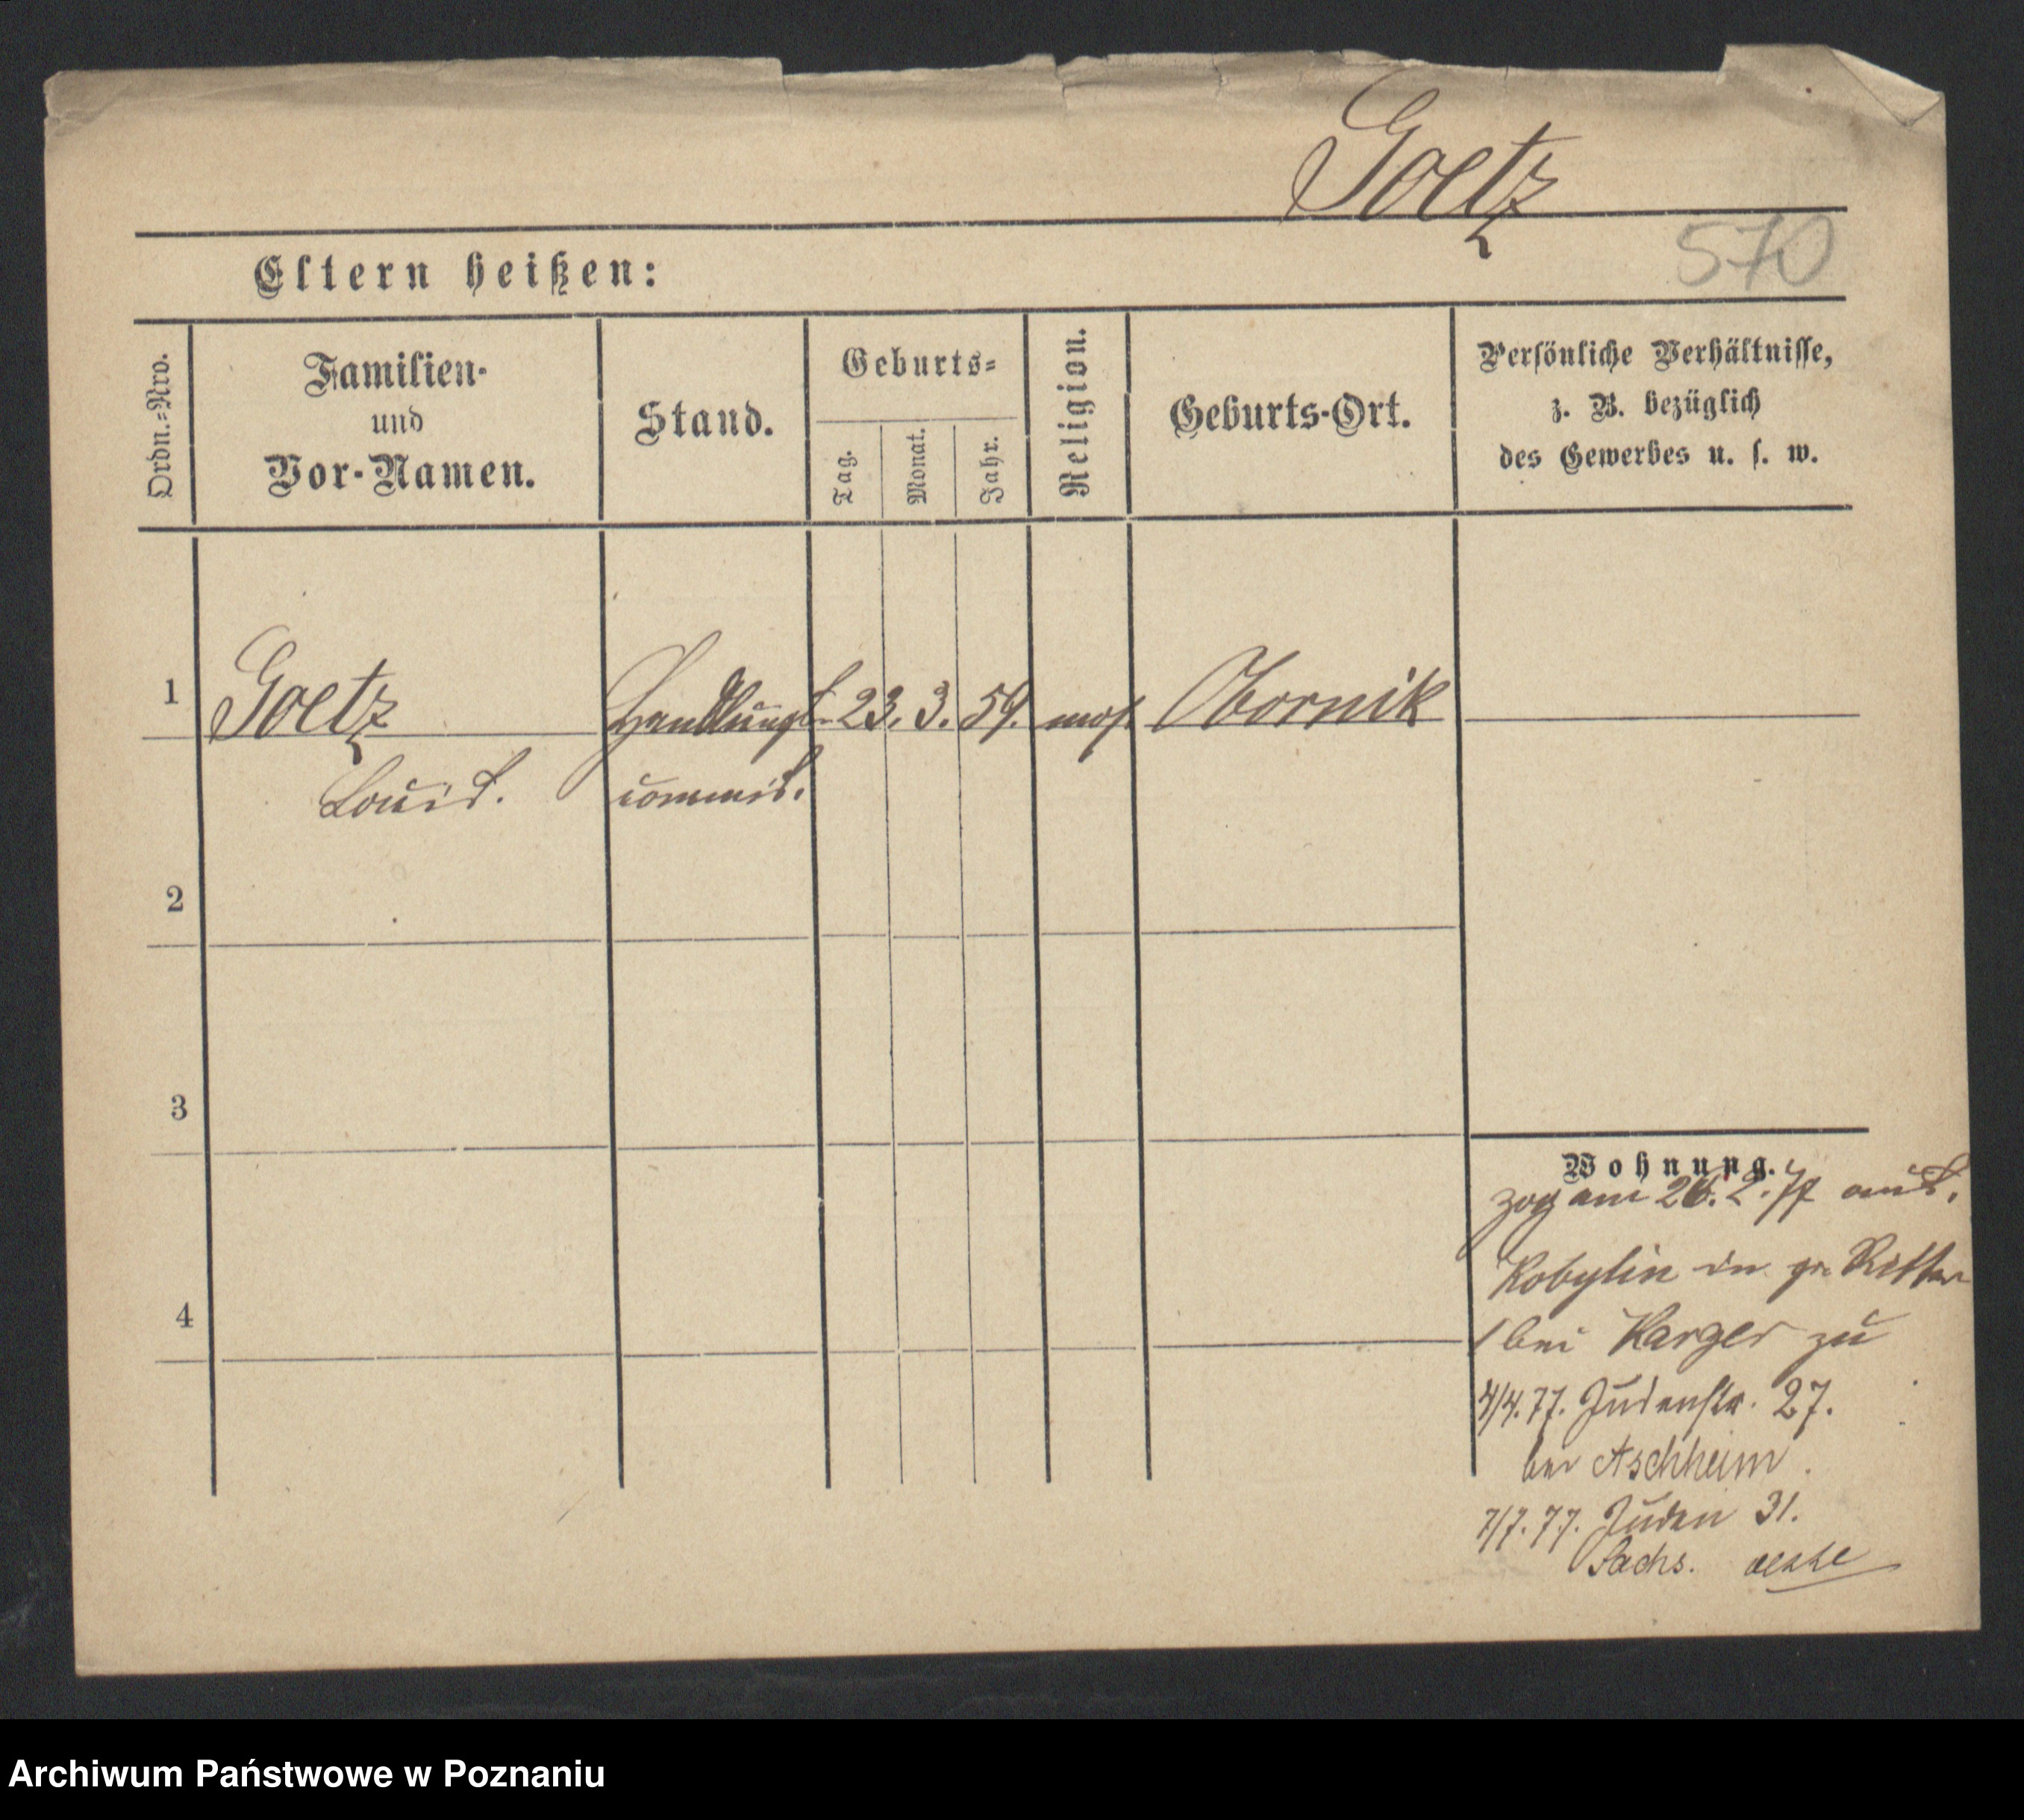 Goetz
570
Eltern heißen:
Ordn.-Nro.
Familien-
und
Vor-Namen.
Stand.
Geburts-
Tag.
Monat.
Jahr.
Religion.
Geburts-Ort.
Persönliche Verhältnisse,
z. B. bezüglich
des Gewerbes u. s. w.
1 Goetz Handlungs- 23. 3. 59. mos. Obornik
Louis. commis.
2
3
4
Wohnung.
zog am 26. 2. 77 aus.
Kobylin in gr. Ritter
1 bei Karger zu
4/4. 77. Judenstr. 27.
bei Aschheim.
7/7. 77. Juden 31.
Sachs.
Archiwum Państwowe w Poznaniu